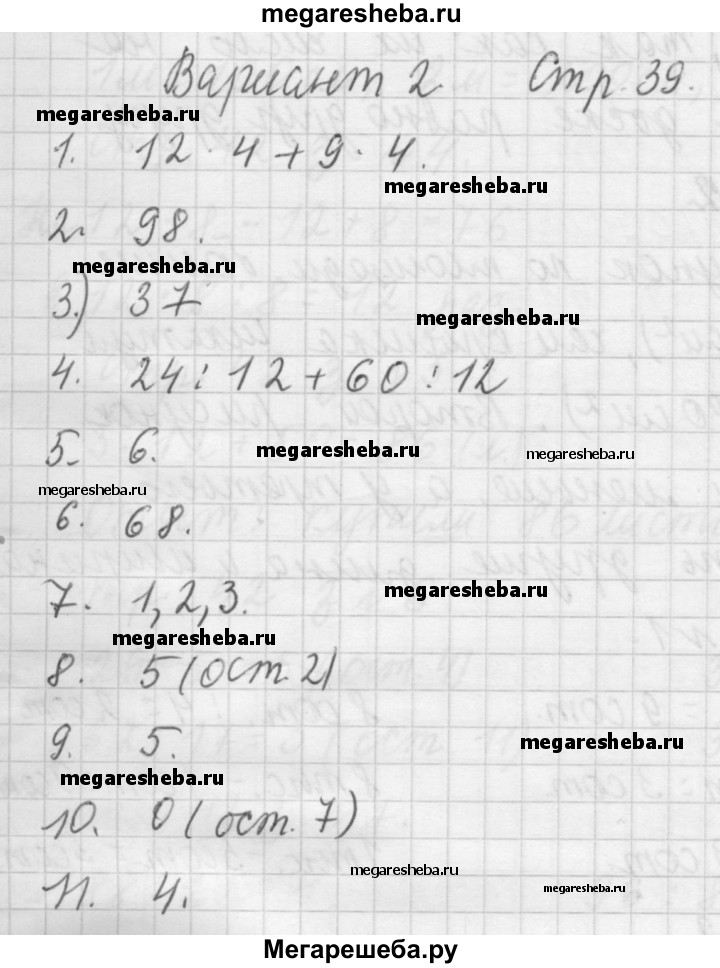 megaresheba.ru
Вариант 2. Стр. 39.
megaresheba.ru
1. 12 · 4 + 9 · 4.
megaresheba.ru
2. 98.
megaresheba.ru
3.) 37
megaresheba.ru
4. 24 : 12 + 60 : 12
5. 6.
megaresheba.ru
megaresheba.ru
megaresheba.ru
6. 68.
7. 1, 2, 3.
megaresheba.ru
megaresheba.ru
8. 5 (ост. 2)
9. 5.
megaresheba.ru
megaresheba.ru
10. 0 (ост. 7)
megaresheba.ru
11. 4.
megaresheba.ru
Мегарешеба.ру